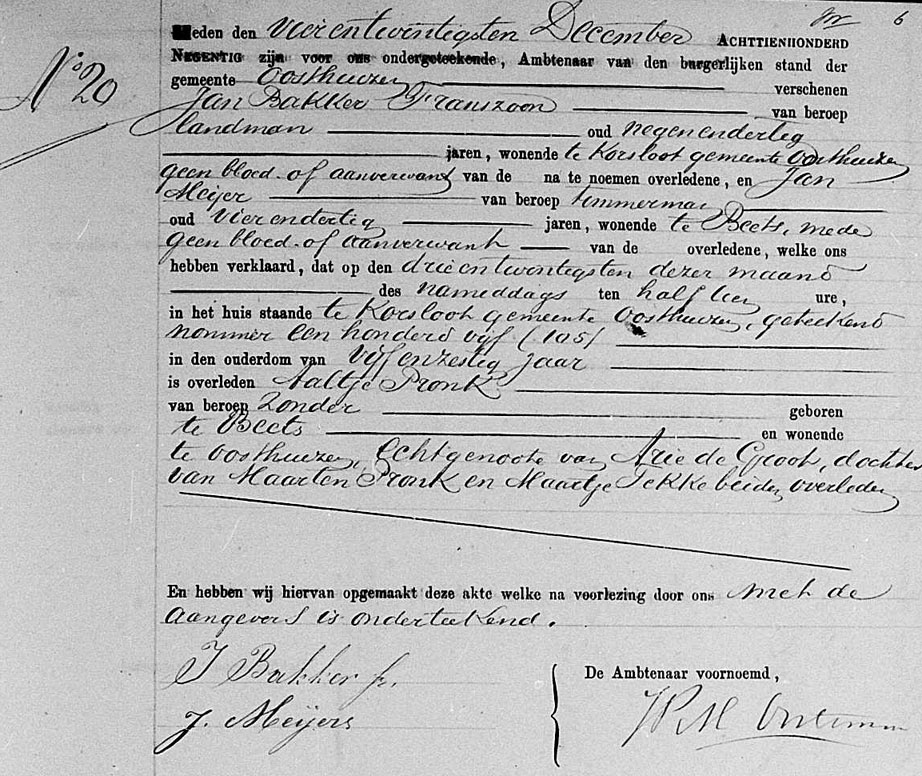 6
N° 20
Heden den vierentwintigsten December ACHTTIENHONDERD
NEGENTIG zijn voor ons ondergeteekende, Ambtenaar van den burgerlijken stand der
gemeente Oosthuizen verschenen
Jan Bakker Franszoon van beroep
landman oud negenendertig
jaren, wonende te Korsloot gemeente Oosthuizen
geen bloed- of aanverwant van de na te noemen overledene, en Jan
Meijer van beroep timmerman
oud vierendertig jaren, wonende te Beets, mede
geen bloed- of aanverwant van de overledene, welke ons
hebben verklaard, dat op den drieentwintigsten dezer maand
des nameddags ten half tien ure,
in het huis staande te Korsloot gemeente Oosthuizen, geteekend
nommer een honderd vijf (105)
in den ouderdom van vijfenzestig jaar
is overleden Aaltje Pronk
van beroep zonder geboren
te Beets en wonende
te Oosthuizen, Echtgenoote van Arie de Groot, dochter
van Maarten Pronk en Maartje Tekke beiden overleden
En hebben wij hiervan opgemaakt deze akte welke na voorlezing door ons met de
aangevers is onderteekend.
J Bakker fz.
J. Meijers
De Ambtenaar voornoemd,